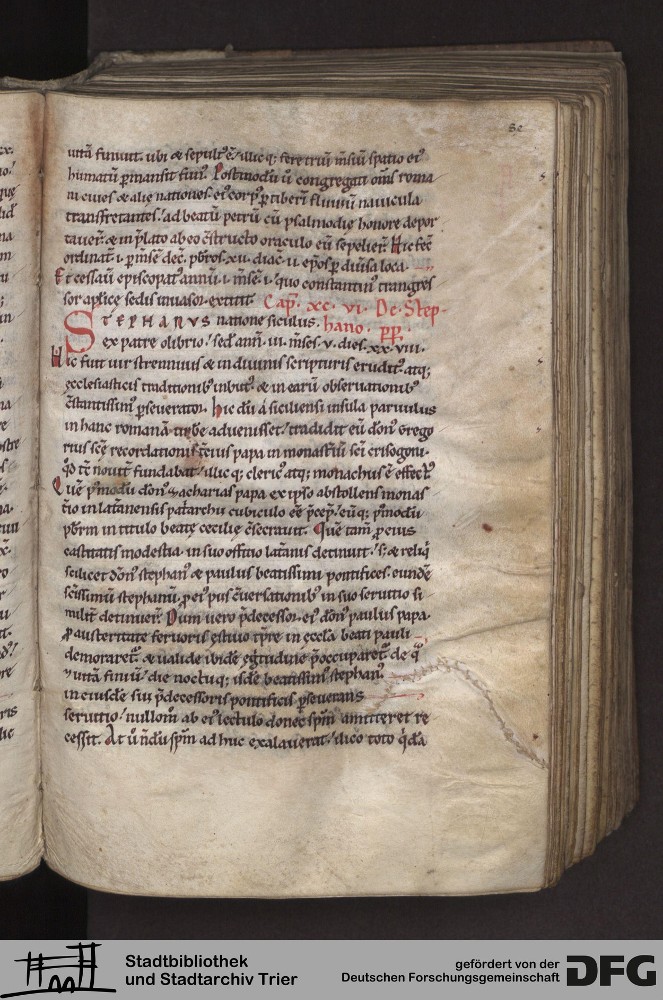 80
uitā finiuit. ubi & sepult' ē. illicq; fere triū m̄siū spatio ei'
humatū p̄mansit fun'. Postmodū ū congregati om̄s roma
ni ciues & alię nationes. ei' corp' p tiberī fluuiū nauicula
transfretantes. ad beatū petrū cū psalmodię honore depor
tauer̄. & in p̄lato ab eo c̄structo oraculo eū sepelier̄. Hic fec̄
ordinat̄. i. p m̄se dec̄. pb̄ros. xii. diac̄. ii. ep̄os p diuersa loca.
Et cessauit episcopat' annū. i. m̄se. i. quo constantin' transgres
sor aplicę sedis inuasor extitit. Cap. xc. vi. De Step-
STEPHANVS natione siculus. hano. pp.
ex patre olibrio. sed' ann̄. iii. m̄ses. v. dies. xx. viii.
Hic fuit uir strennuus & in diuinis scripturis erudit'. atq;
ecclesiasticis traditionib' inbut'. & in earū obseruationib'
c̄stantissim' p̄seuerator. hic dū a siciliensi insula paruulus
in hanc romanā urbe aduenisset. tradidit eū don' grego
rius scē recordationis t̄cius papa in monastiū sc̄i crisogoni.
qd' tc̄ nouit' fundabat. illicq; cleric' atq; monachus ē effect'.
Quē p'modū don' zacharias papa ex ipso abstollens monas
t̄io in lat̄anensis pat̄archii cubiculo eē p̄cep'. eūq; p'modū
pb̄rm in titulo beatę cecilię c̄secrauit. Quē tam̄ p eius
castitatis modestia. in suo offitio lat̄anis detinuit. s; & reliq̄
scilicet don' stephan' & paulus beatissimi pontifices. eundē
sc̄issimū stephanū. p ei' pus c̄uersationib' in suo seruitio si
milit̄ detinuer̄. Dum uero p̄decessor ei' don' paulus papa.
p austeritate feruoris ęstiuo tp̄re in ęccła beati pauli
demoraret̄. & ualide ibidē egritudine p̄occuparet̄. de q̄
uitā finiu. die noctuq; isdē beatissim' stephan'
in eiusdē sui p̄decessoris pontificis p̄seuerans
seruitio. nullom̄ ab ei' lectulo donec sp̄m amitteret re
cessit. At ū n̄dū sp̄m ad huc exalauerat. dico toto q'dā
Stadtbibliothek
und Stadtarchiv Trier
gefördert von der
Deutschen Forschungsgemeinschaft
DFG